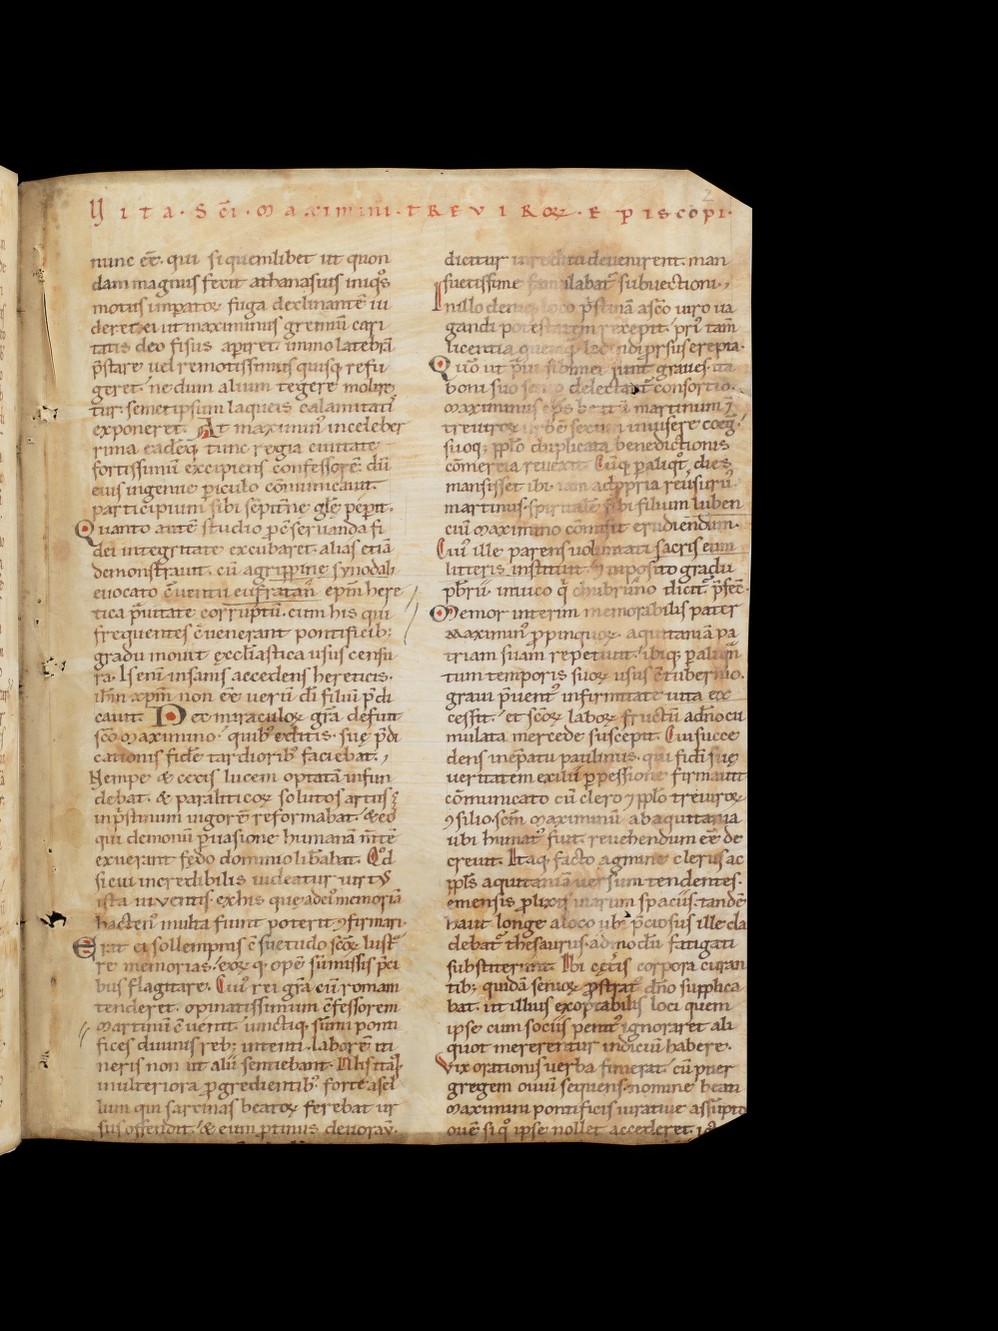 Vita · Sc̄i · Maximini · tREVIRoꝝ · E piscopi ·
2
nunc eē. qui siquemlibet ut quon
dam magnus fecit athanasius iniq̄s
motus impatoꝝ fuga declinantē ui
deret. ei ut maximinus gremiū cari
tatis deo fisus apiret. immo latebrā
p̄stare uel remotissimus quisq; refu
geret. ne dum alium tegere molire
tur. semetipsum laqueis calamitati
exponeret. At maximin᷒ inceleber
rima eadēq; tunc regia ciuitate
fortissimū excipiens confessorē. dū
eius ingenue piculo cōmunicauit.
participium sibi sēpitne glē pepit.
Quanto autē studio p cōseruanda fi
dei integritate excubaret. alias etiā
demonstrauit. cū agrippine synodali
euocato cuentu eufratan epm here
tica p̄uitate corruptū. cum his qui
frequentes cuenerant pontificib;
gradu mouit ecclīastica usus censu
ra. Is enī insanis accedens hereticis.
ihm xpm non eē uerū di filiū p̄di
cauit. De miraculoꝝ gr̄a defuit
sc̄o Maximino. quib᷒ editis. suę p̄di
cationis fidē tardiorib᷒ faciebat.
Nempe & cecis lucem optatā infun
debat. & paraliticoꝝ solutos artus
inp̄stinum uigorē reformabat. & eos
qui demonū puasione humanā mtē
exuerant fedo dominio libabat. Qd
si cui incredibilis uideatur uirtꝰ
ista uiuentis. ex his que ad ei memoria
hacten᷒ multa fiunt poterit ɔfirmari.
Erat ei sollempnis csuetudo scōꝝ lust
re memorias. eoꝝ q; opē sūmissis p̄ci
bus flagitare. Cui᷒ rei gr̄a cū romam
tenderet. opinatissimum cfessorem
martinū cuenit. unctiq; sūmi ponti
fices diuinis reb; intenti. laborē iti
neris non ut alii sentiebant.
inulteriora pgredientib᷒ forte asel
lum qui sarcinas beatoꝝ ferebat ur
sus offendit. & eum ptinus deuorau.
dicitur deuenirent. man
suetissime famulabat᷒ subuectioni.
In illo p̄stinā ascō uiro ua
gandi potestatem recepit. pri tam
licentia
Quo ut graues
boni suo delectar consortio.
Maximinus eps martinum
treuiroꝝ inuisere coeg.
suoq; pplo duplicata benedictionis
cōmercia reuexit. Cuq; p aliqt dies
mansisset ibi. adppria reuisurū
martinus. filium luben
cui Maximino cōmisit erudiendum.
Cui᷒ ille parens uoluntati sacris eum
litteris instituit. ɔ imposito gradu
pbrii. inuico dicit᷒ p̄fec.
Memor interim memorabilis pater
Maximin᷒ ppinquoꝝ. aquitaniā pa
triam suam repetiuit. ibiq; p aliqn
tum temporis suoꝝ usus
graui puent᷒ infirmitate uita ex
cessit. et scōꝝ laboꝝ fructū adno cu
mulata mercede suscepit. Cui succe
dens inepatu paulinus. qui fidī suę
ueritatem exilii ppessione firmauit
cōmunicato cū clero ɔ pplo treuiroꝝ
ɔsilio. scm Maximinū ab aquitania
ubi humat᷒ fuit. reuehendum eē de
creuit. Itaq; facto agmine clerus ac
ppls aquitaniam uersum tendentes.
emensis plixis uiarum spaciis. tandē
haut longe a loco ub᷒ p̄ciosus ille cla
debat᷒ thesaurus. ad modū fatigati
substiterunt. Ibi cetis corpora curan
tib; quidā senioꝝ pstrat᷒ dno supplica
bat. ut illius exoptabilis loci quem
ipse cum sociis penit᷒ ignoraret ali
quot mererentur indiciū habere.
Vix orationis uerba finierat. cū puer
gregem ouiū sequens. nomine beati
Maximini pontificis iuratiue assūpto
ouē siq᷒ ipse nollet accederet.